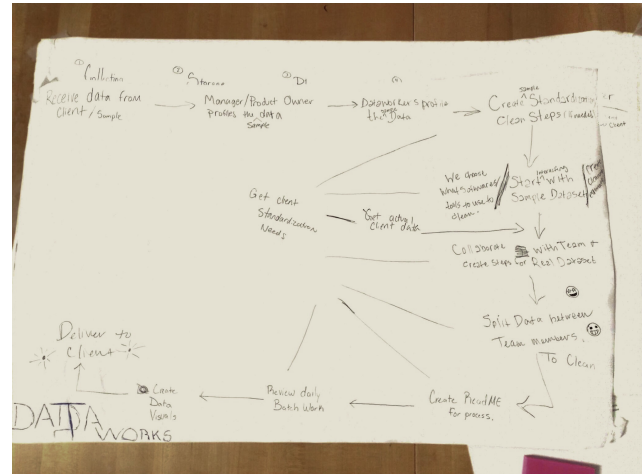 ① Collection
② Storage
③
④
Receive data from
Client / Sample
Manager/Product Owner
profiles the data
Sample
Dataworkers profile
the Data
Sample
Create Standardization
Clean Steps (if needed)
Client
We choose
what softwares/
tools to use to
clean.
Start with
Interesting
Sample Dataset
Get client
Standardization
Needs
Get actual
Client data
Collaborate with Team +
create steps for Real Dataset
Split Data between
Team members.
To Clean
Create ReadME
for process.
Review daily
Batch Work
Create
Data
Visuals
Deliver to
Client
DATA
WORKS